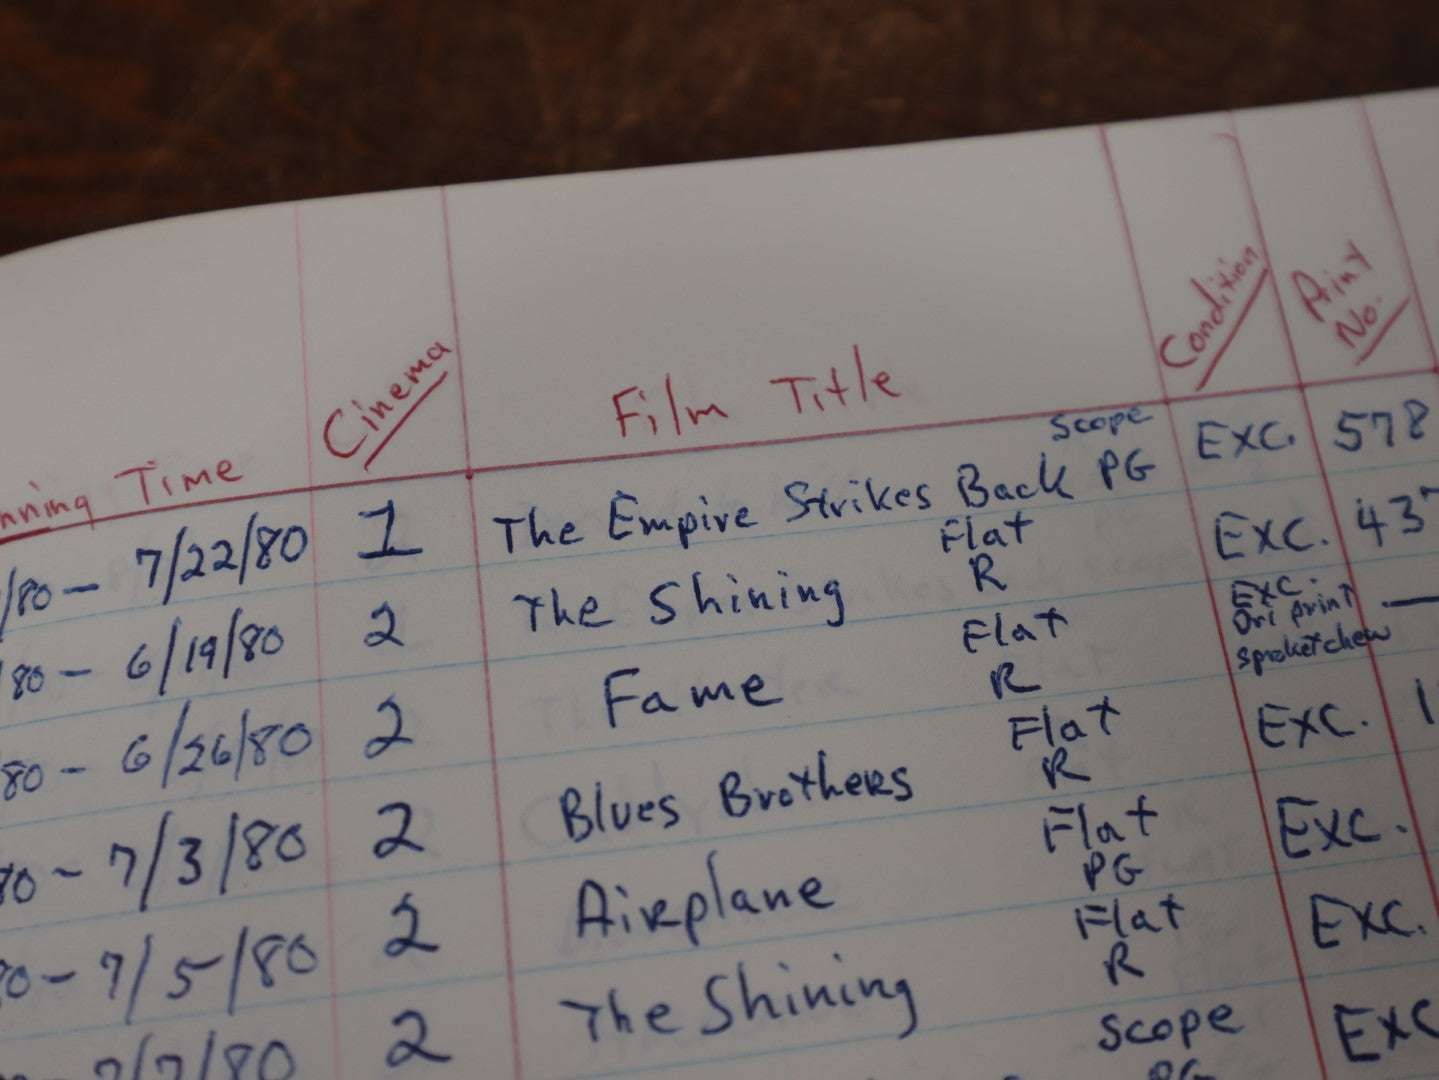 Running Time Cinema Film Title Condition Print No.
/80 – 7/22/80 1 The Empire Strikes Back Scope PG Exc. 578
/80 – 6/19/80 2 The Shining Flat R Exc. 437
80 – 6/26/80 2 Fame Flat R Exc Ori print sprocket chew —
80 – 7/3/80 2 Blues Brothers Flat R Exc. 1
80 – 7/5/80 2 Airplane Flat PG Exc.
7/7/80 2 The Shining Flat R Exc.
Scope PG Exc